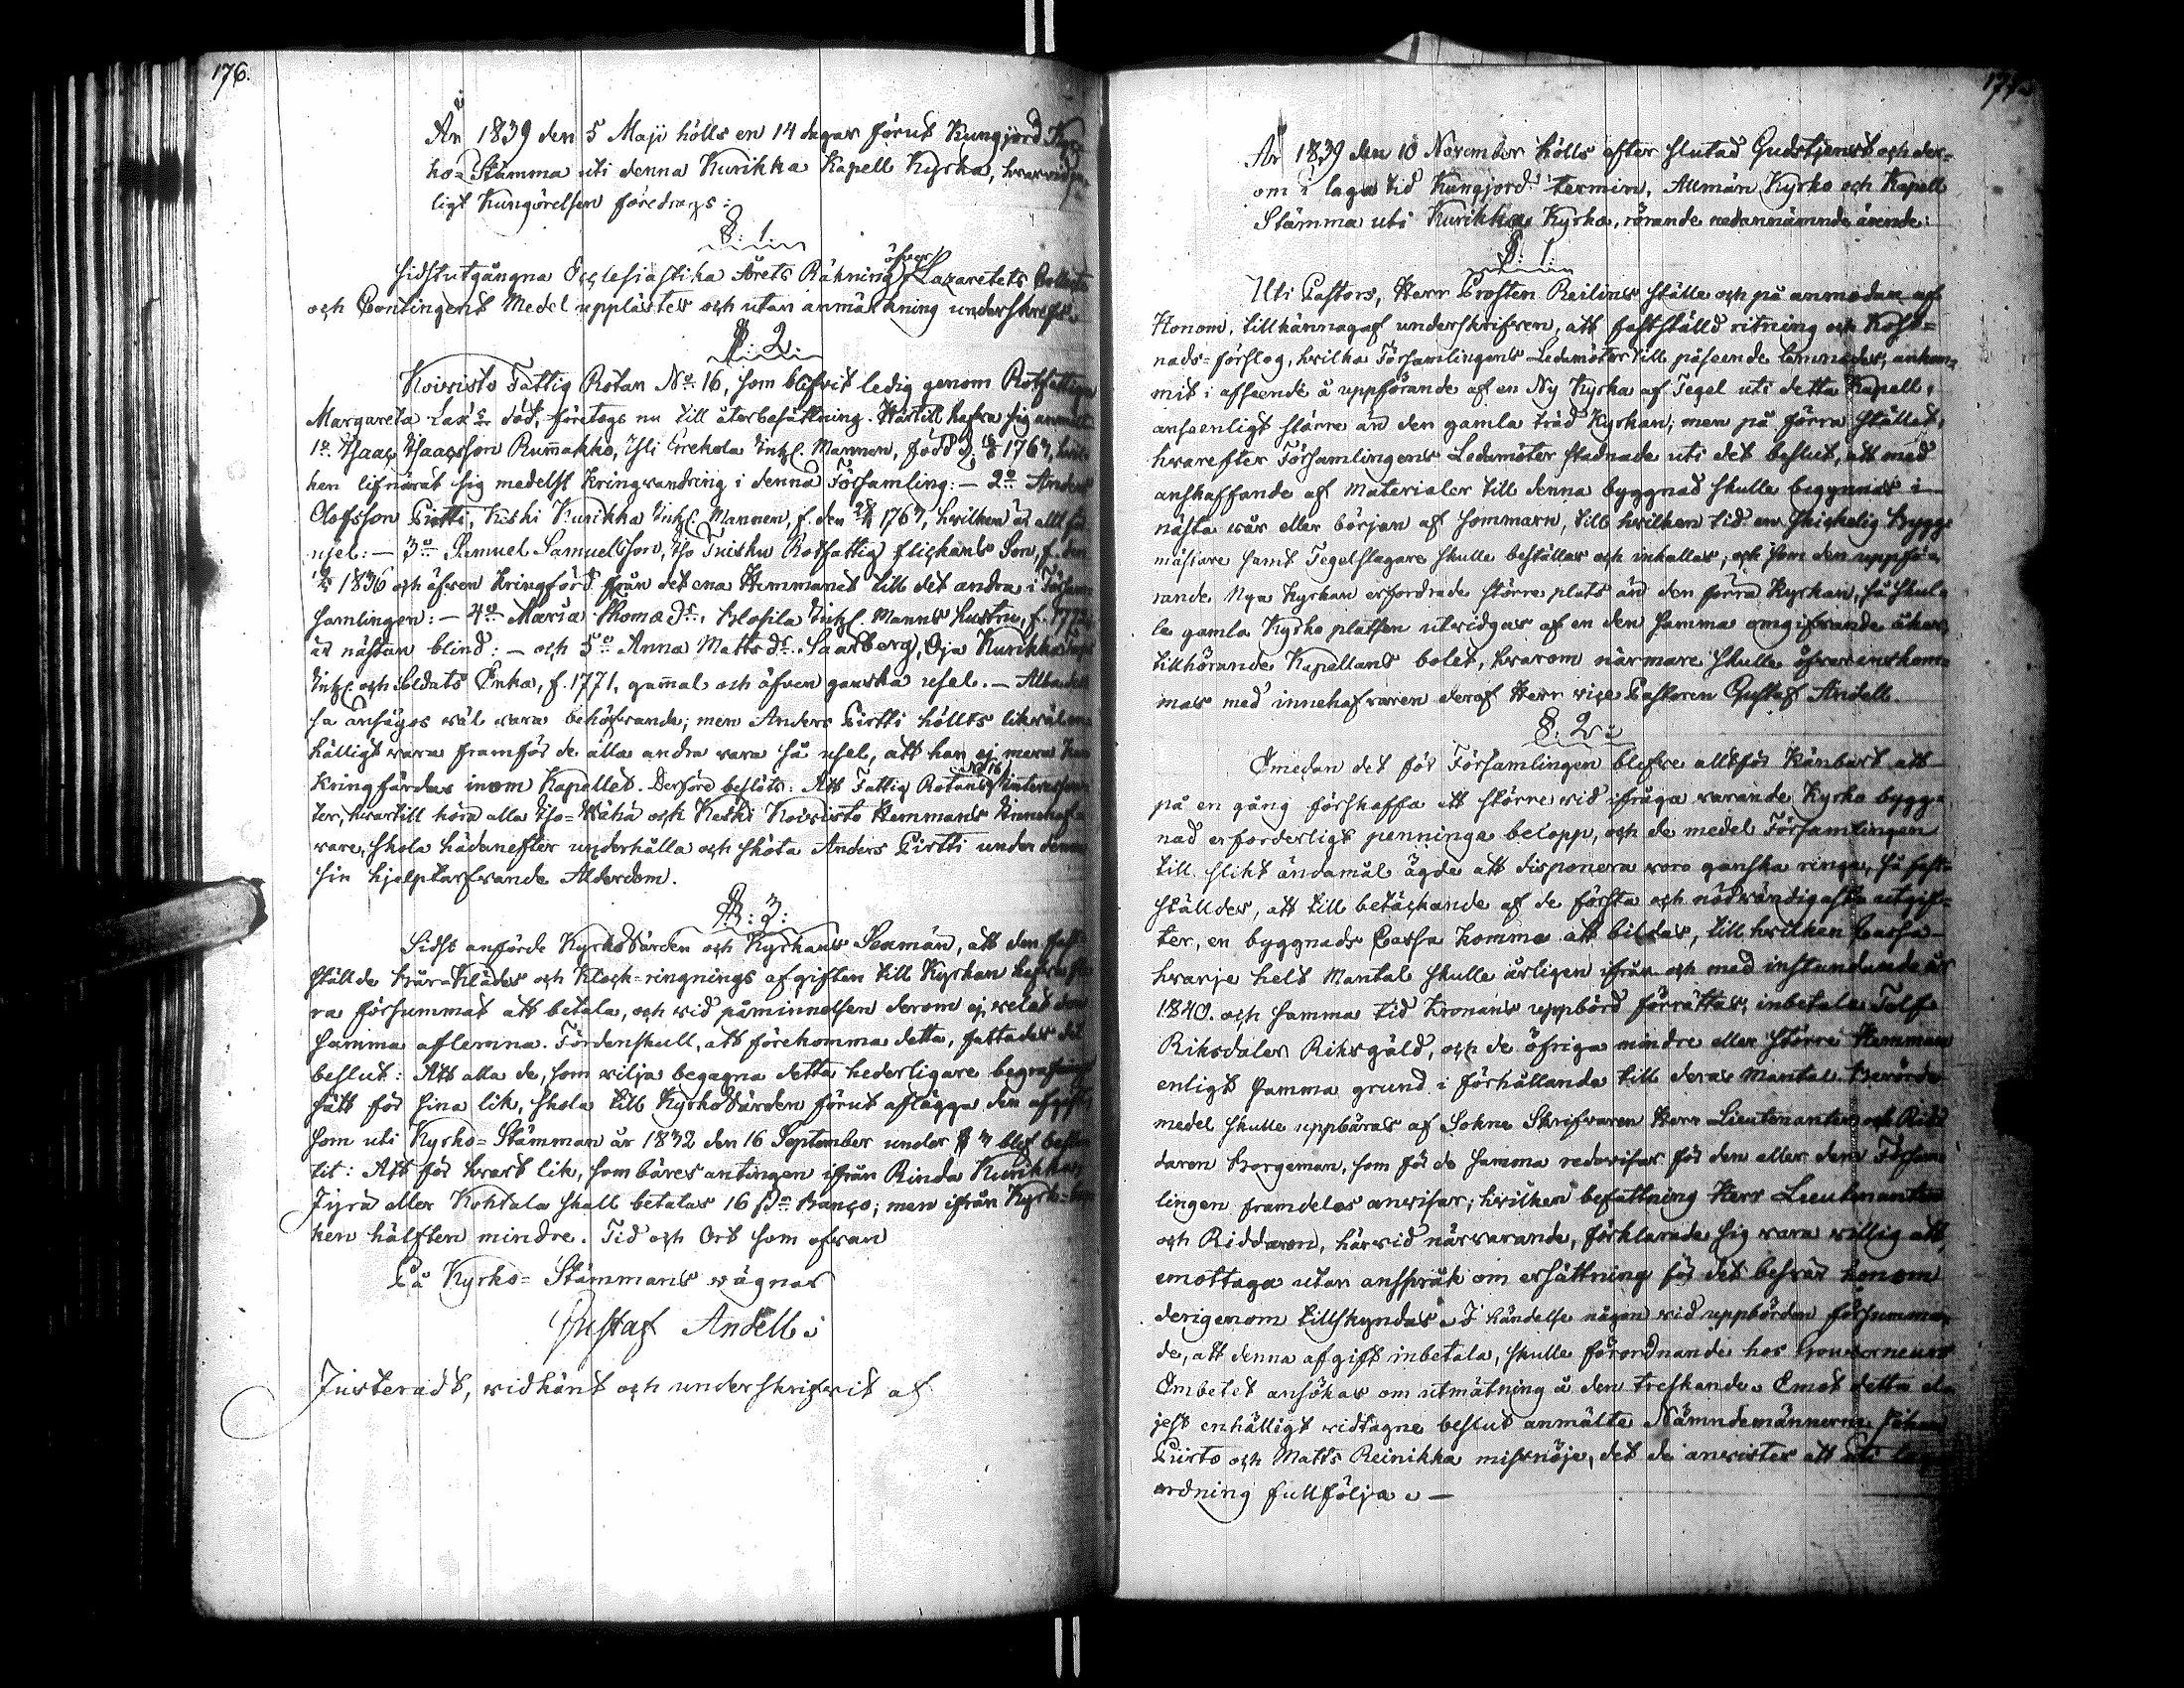 176.
År 1839 den 5 Maji hölls en 14 dagar förut Kungjord Kyr-
ko-Stämma uti denna Kurikka Kapell Kyrka, hvarvid
ligt Kungörelsen föredrogs:
§. 1.
Sidstutgångna Ecclesiastika Årets Räkning öfver Lazaretets Collect
och Contingent Medel upplästes och utan anmärkning underskrefs.
§. 2.
Koivisto Fattig Rotan No 16, som blifvit ledig genom Rotfattiga
Margareta Lax's död, företogs nu till återbesättning. Härtill hafva sig anmält
1o Isaac Isaacsson Rumakko, Yli Errekola Inh. Mannen, född d. 1767, hvil-
ken lifnärat sig medelst kringvandring i denna Församling: — 2o Anders
Olofsson Pirtti, Keski Kurikka Inh. Mannen, f. den 1767, hvilken är allt för
usel: — 3o Samuel Samuelsson, Iso Tuisku Rotfattig flickans Son, f. den
1836 och äfven kringförd från det ena Hemmanet till det andra i För-
samlingen: — 4o Maria Thomæ Dr. Inh. Manns hustru, f. 1772
är nästan blind: — och 5o Anna Matts Dr. Saarberg, Oja Kurikka
Inh. och Soldats Enka, f. 1771, gammal och äfven ganska usel. — Alla des-
sa ansågos väl vara behöfvande; men Anders Pirtti hölls likväl en-
hälligt vara framför de alla andra vara så usel, att han ej mera kan
kringfärdas inom Kapellet. Derföre beslöts: Att Fattig Rotans No 16 interessen-
ter, hvartill höra alla Iso- Vähä och Keski Koivisto Hemmans Innehaf-
vare, skola hädanefter underhålla och sköta Anders Pirtti under denna
sin hjelptarfvande Ålderdom.
§. 3.
Sidst anförde Kyrkovärden och Kyrkans Sexmän, att den fast-
ställde Bår-Klädes och Klock-ringnings afgiften till Kyrkan hafva fle-
ra försummat att betala, och vid påminnelsen derom ej velat den-
samma aflemna. Fördenskull, att förekomma detta, fattades det
beslut: Att alla de, som vilja begagna detta hederligare begrafnings
sätt för sina lik, skola till Kyrkovärden förut aflägga den afgift,
som uti Kyrko-Stämman år 1832 den 16 September under § 3 blef beslu-
tit: Att för hvart lik, som bäres antingen ifrån Rinda Kurikka,
Jyrä eller Kohtala skall betalas 16 s. Banco; men ifrån Kyrkbac-
ken hälften mindre. Tid och Ort som ofvan
På Kyrko-Stämmans vägnar
Gustaf Andell.
Justeradt, vidkänt och underskrifvit af
177.
År 1839 den 10 November hölls efter slutad Gudstjenst och der-
om i laga tid Kungjord termin, Allmän Kyrko och Kapell
Stämma uti Kurikka Kyrka, rörande nedannämnde ärende:
§. 1.
Uti Pastors, Herr Prosten Reilins ställe och på anmodan af
Honom, tillkännagaf underskrifven, att fastställd ritning och Kost-
nads-förslag, hvilka Församlingens Ledamöter till påseende lemnades, ankom-
mit i afseende å uppförande af en Ny Kyrka af Tegel uti detta Kapell,
anseenligt större än den gamla träd Kyrkan; men på förra stället,
hvarefter Församlingens Ledamöter stadnade uti det beslut, att med
anskaffande af Materialer till denna byggnad skulle begynnas i
nästa vår eller början af sommarn, till hvilken tid en skickelig Bygg-
mästare samt Tegelslagare skulle beställas och inkallas, och som den uppfö-
rande Nya Kyrkan erfordrade större plats än den förra Kyrkan, så skul-
le gamla Kyrko platsen utvidgas af en den samma omgifvande åker,
tillhörande Kapellans bolet, hvarom närmare skulle öfverenskom-
mas med innehafvaren deraf Herr vice Pastoren Gustaf Andell.
§. 2.
Emedan det för Församlingen blefve alltför känbart att
på en gång förskaffa ett större vid ifråga varande Kyrko bygg-
nad erforderligt penninga belopp, och de medel Församlingen
till slikt ändamål ägde att disponera voro ganska ringa, så fast-
ställdes, att till betäckande af de första och nödvändigaste utgif-
ter, en byggnads Cassa komme att bildas, till hvilken Cassa
hvarje helt Mantal skulle årligen ifrån och med instundande år
1840. och samma tid Kronans uppbörd förrättas, inbetala Tolf
Riksdaler Riksgäld, och de öfriga mindre eller större Hemman
enligt samma grund i förhållande till deras Mantal. Berörde
medel skulle uppbäras af Sokne Skrifvaren Herr Lieutenanten och Rid-
daren Borgeman, som för de samma redovisar för den eller dem Försam-
lingen framdeles anvisar; hvilken befattning Herr Lieutenanten
och Riddaren, härvid närvarande, förklarade sig vara villig att
emottaga utan anspråk om ersättning för det besvär honom
derigenom tillskyndas. I händelse någon vid uppbörden försumma-
de, att denna afgift inbetala, skulle förordnande hos Gouverneurs
Embetet ansökas om utmätning å den treskande. Emot detta el-
jest enhälligt vidtagne beslut anmälte Nämndemännerne Johan
Piirto och Matts Reinikka missnöje, det de anvistes att uti laga
ordning fullfölja. —